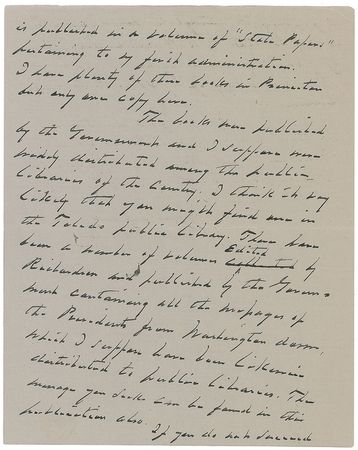 is published in a volume of "State Papers"
pertaining to my first administration.
I have plenty of these books in Princeton
but only one copy here.
The books were published
by the Government and I suppose were
widely distributed among the public
libraries of the Country. I think it very
likely that you might find one in
the Toledo public library. There have
been a number of volumes Edited by
Richardson and published by the Govern-
ment containing all the messages of
the Presidents from Washington down,
which I suppose have been likewise
distributed to public libraries. The
message you seek can be found in this
publication also. If you do not succeed